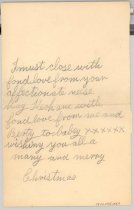 I must close with
fond love from your
affectionate niece
with
fond love from me and
to baby xxxxxx
wishing you all a
many and merry
Christmas